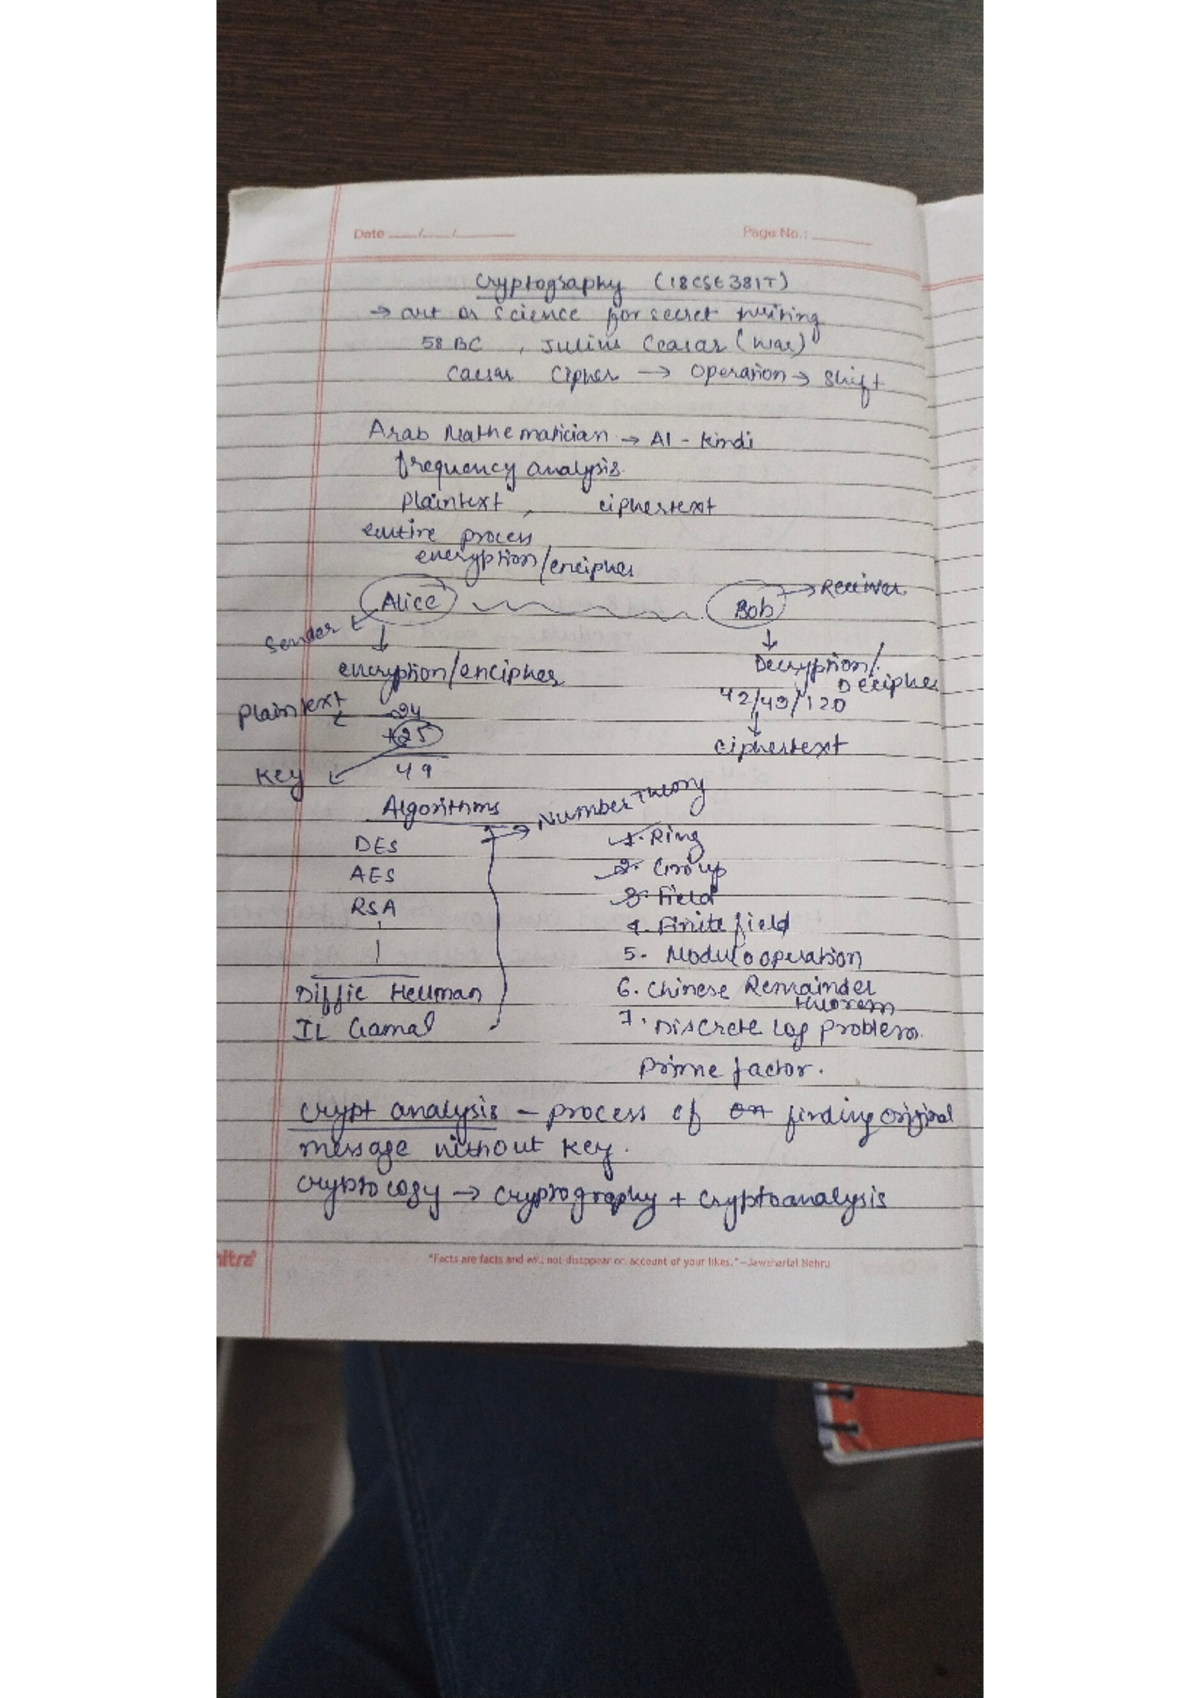 Date ___/___/______ Page No.: ______
Cryptography (18CSE381T)
→ art or science for secret writing
58 BC , Julius Ceasar (war)
Caesar Cipher → operation → shift
Arab Mathematician → Al-kindi
frequency analysis.
Plaintext , ciphertext
entire process
encryption/encipher
Alice Bob → Receiver
Sender
encryption/encipher Decryption/
Decipher
Plaintext 24 42/49/120
+25 ciphertext
Key 49
Algorithms → Number Theory
DES 1. Ring
AES 2. Group
RSA 3. Field
4. Finite field
5. Modulo operation
Diffie Hellman 6. Chinese Remainder
theorem
IL Gamal 7. Discrete Log problem.
Prime factor.
Crypt analysis - process of finding original
message without key.
Cryptology → Cryptography + Cryptoanalysis
"Facts are facts and will not disappear on account of your likes." –Jawaharlal Nehru